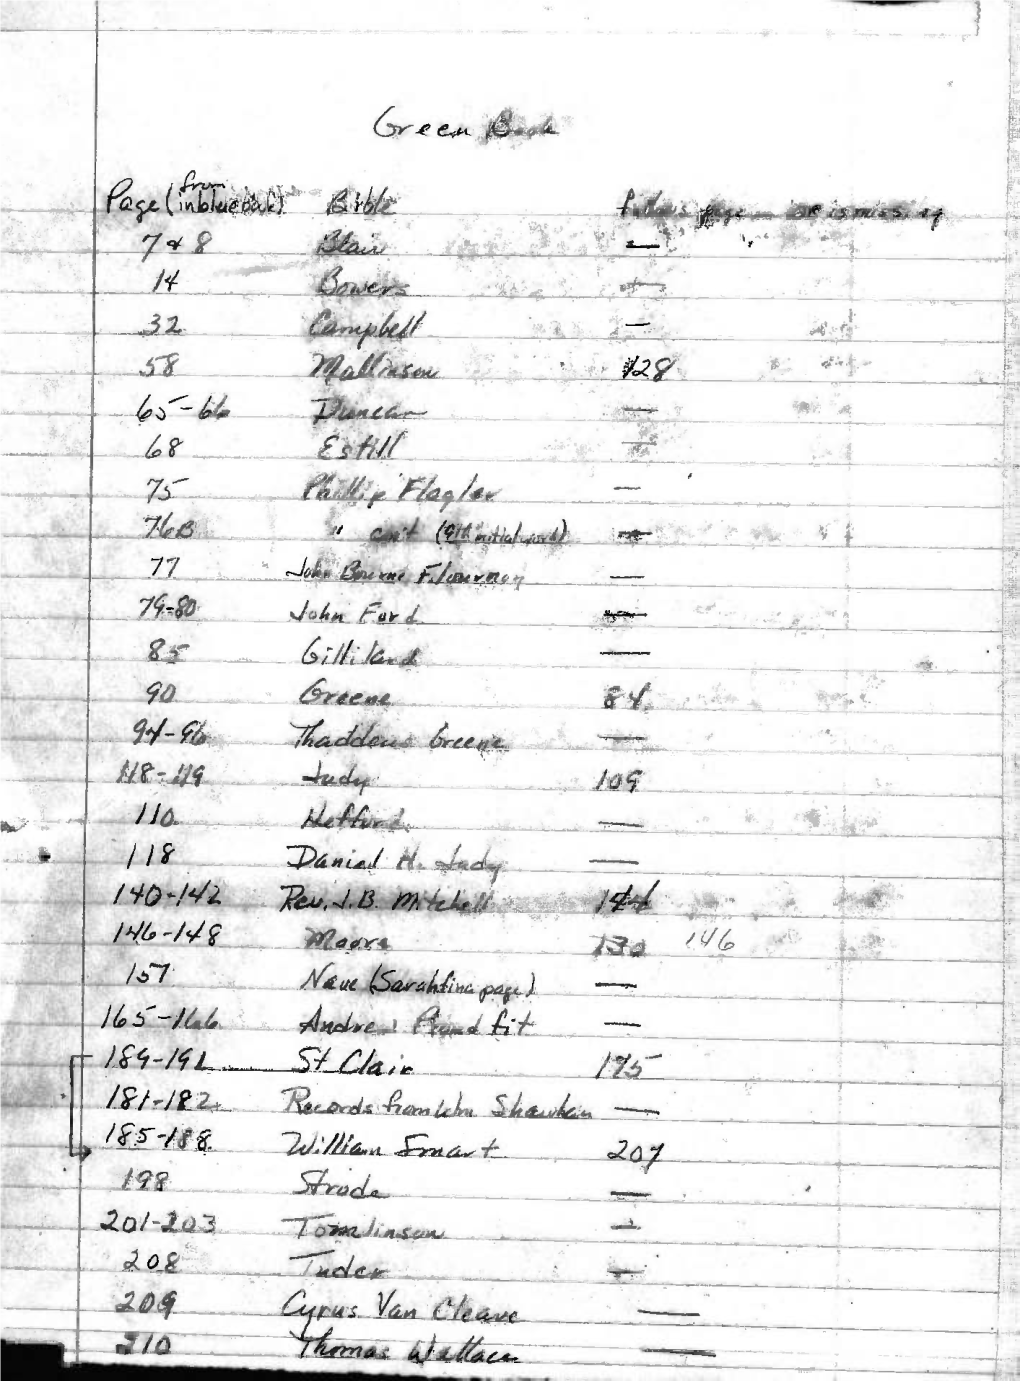 Green Book
from
Page (in bluebook) Bible page or is missing
7 & 8 Blair —
14 Bowers —
32 Campbell —
58 Mallinson 128
65-66 Duncan —
68 Estill —
75 Phillip Flagler —
76B " con't (9th initial word) —
77 John Bourne Flournoy —
79-80 John Ford —
85 Gilliland —
90 Greene 84
94-96 Thaddeus Greene —
118-119 Judy 109
110 Hefford —
118 Daniel H. Judy —
140-142 Rev. J.B. Mitchell 144
146-148 Moore 130 146
157 Nave (Sarahfina page) —
165-166 Andrew Proudfit —
189-191 St Clair 195
181-182 Records from Wm Shawhan —
185-188 William Smart 207
198 Strode —
201-203 Tomlinson —
208 Tuder —
209 Cyrus Van Cleave —
210 Thomas Wallace —